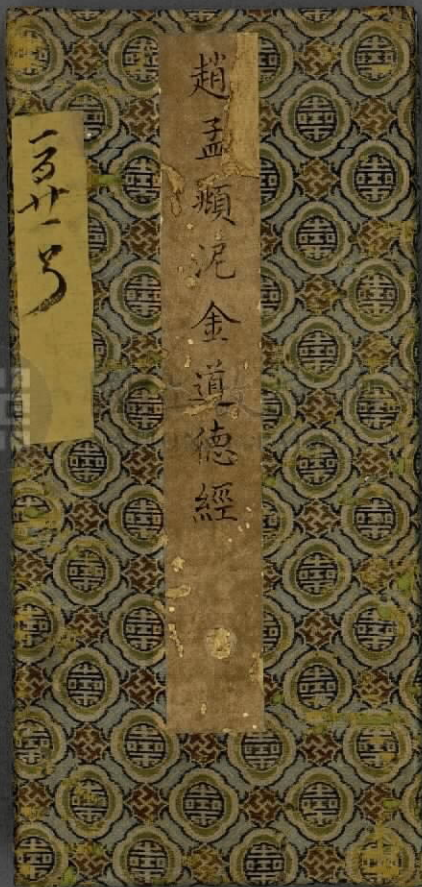 趙孟頫泥金道德經
一百廿一号